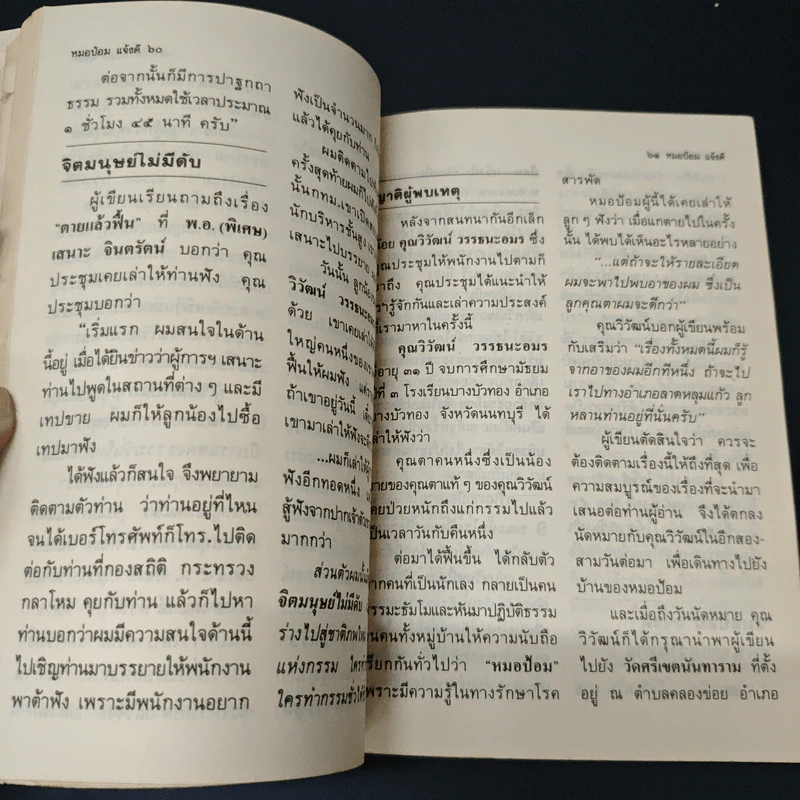 หมอป้อม แจ้งดี ๖๐
ต่อจากนั้นก็มีการปาฐกถา
ธรรม รวมทั้งหมดใช้เวลาประมาณ
๑ ชั่วโมง ๔๕ นาที ครับ”
จิตมนุษย์ไม่มีดับ
ผู้เขียนเรียนถามถึงเรื่อง
“ตายแล้วฟื้น” ที่ พ.อ.(พิเศษ)
เสนาะ จินตรัตน์ บอกว่า คุณ
ประชุมเคยเล่าให้ท่านฟัง คุณ
ประชุมบอกว่า
“เริ่มแรก ผมสนใจในด้าน
นี้อยู่ เมื่อได้ยินข่าวว่าผู้การฯ เสนาะ
ท่านไปพูดในสถานที่ต่าง ๆ และมี
เทปขาย ผมก็ให้ลูกน้องไปซื้อ
เทปมาฟัง
ได้ฟังแล้วก็สนใจ จึงพยายาม
ติดตามตัวท่าน ว่าท่านอยู่ที่ไหน
จนได้เบอร์โทรศัพท์ก็โทร.ไปติด
ต่อกับท่านที่กองสถิติ กระทรวง
กลาโหม คุยกับท่าน แล้วก็ไปหา
ท่านบอกว่าผมมีความสนใจด้านนี้
ไปเชิญท่านมาบรรยายให้พนักงาน
พาต้าฟัง เพราะมีพนักงานอยาก
ฟังเป็นจำนวนมาก
แล้วได้คุยกับท่าน
ผมติดตามไป
ครั้งสุดท้ายผมก็ไป
นั้นกทม.เขาเปิด
นักบริหารชั้นสูง
เสนาะไปบรรยาย
วันนั้น ลูกน้อง
วิวัฒน์ วรรธนะ
ด้วย เขาเคยเล่าให้
ใหญ่คนหนึ่งของ
ฟื้นให้ผมฟัง
ถ้าเขาอยู่วันนี้
เขามาเล่าให้ฟัง
...ผมก็เล่าให้
ฟังอีกทอดหนึ่ง
สู้ฟังจากปากเจ้าตัว
มากกว่า
ส่วนตัวผมนั้น
จิตมนุษย์ไม่มีดับ
ร่างไปสู่ชาติภพใหม่
แห่งกรรม ใคร
ใครทำกรรมชั่ว
๖๑ หมอป้อม แจ้งดี
ญาติผู้พบเหตุ
หลังจากสนทนากันอีกเล็ก
น้อย คุณวิวัฒน์ วรรธนะอมร ซึ่ง
คุณประชุมให้พนักงานไปตามก็
มาถึง คุณประชุมได้แนะนำให้
เรารู้จักกันและเล่าความประสงค์
ที่เรามาหาในครั้งนี้
คุณวิวัฒน์ วรรธนะอมร
อายุ ๓๑ ปี จบการศึกษามัธยม
ปีที่ ๓ โรงเรียนบางบัวทอง อำเภอ
บางบัวทอง จังหวัดนนทบุรี ได้
เล่าให้ฟังว่า
คุณตาคนหนึ่งซึ่งเป็นน้อง
ชายของคุณตาแท้ ๆ ของคุณวิวัฒน์
เคยป่วยหนักถึงแก่กรรมไปแล้ว
เป็นเวลาวันกับคืนหนึ่ง
ต่อมาได้ฟื้นขึ้น ได้กลับตัว
จากคนที่เป็นนักเลง กลายเป็นคน
ธรรมะธัมโมและหันมาปฏิบัติธรรม
จนคนทั้งหมู่บ้านให้ความนับถือ
เรียกกันทั่วไปว่า “หมอป้อม”
เพราะมีความรู้ในทางรักษาโรค
สารพัด
หมอป้อมผู้นี้ได้เคยเล่าให้
ลูก ๆ ฟังว่า เมื่อแกตายไปในครั้ง
นั้น ได้พบได้เห็นอะไรหลายอย่าง
“...แต่ถ้าจะให้รายละเอียด
ผมจะพาไปพบอาของผม ซึ่งเป็น
ลูกคุณตาผมจะดีกว่า”
คุณวิวัฒน์บอกผู้เขียนพร้อม
กับเสริมว่า “เรื่องทั้งหมดนี้ผมก็รู้
จากอาของผมอีกทีหนึ่ง ถ้าจะไป
เราไปทางอำเภอลาดหลุมแก้ว ลูก
หลานท่านอยู่ที่นั่นครับ”
ผู้เขียนตัดสินใจว่า ควรจะ
ต้องติดตามเรื่องนี้ให้ถึงที่สุด เพื่อ
ความสมบูรณ์ของเรื่องที่จะนำมา
เสนอต่อท่านผู้อ่าน จึงได้ตกลง
นัดหมายกับคุณวิวัฒน์ในอีกสอง-
สามวันต่อมา เพื่อเดินทางไปยัง
บ้านของหมอป้อม
และเมื่อถึงวันนัดหมาย คุณ
วิวัฒน์ก็ได้กรุณานำพาผู้เขียน
ไปยัง วัดศรีเขตนันทาราม ที่ตั้ง
อยู่ ณ ตำบลคลองข่อย อำเภอ